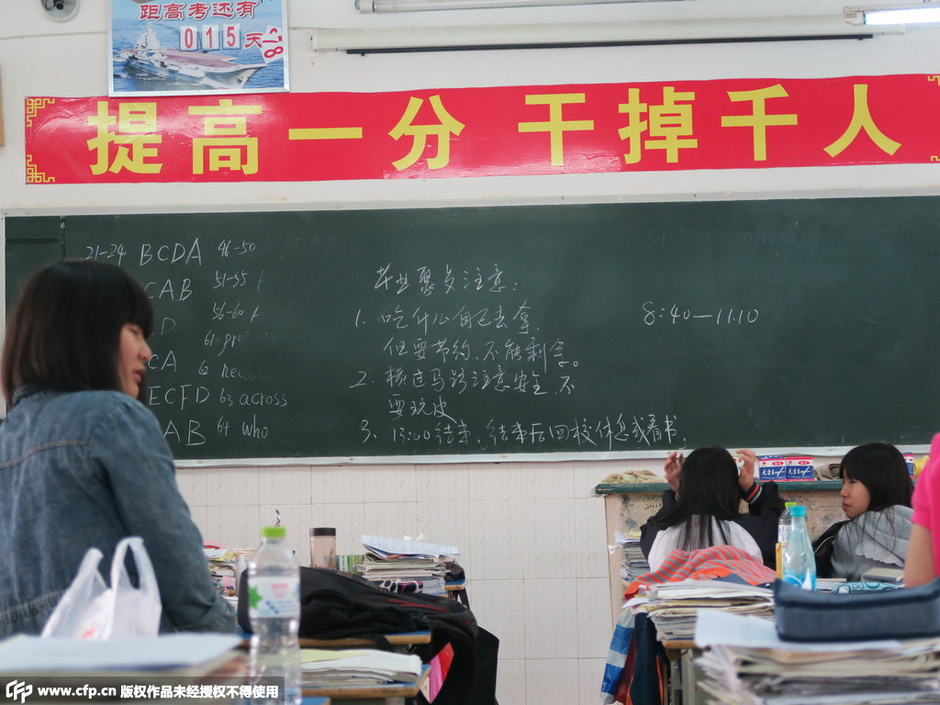 距高考还有
015天
提高一分 干掉千人
21-24 BCDA 46-50
CAB 51-55
D 56-60
61 pro
CA 62 rec
ECFD 63 across
AB 64 who
毕业聚参注意:
1. 吃什么自己去拿,
但要节约、不能剩拿。
2. 横过马路注意安全、不
要玩皮
3、13:00结束、结束后回校休息或看书.
8:40—11:10
www.cfp.cn 版权作品未经授权不得使用